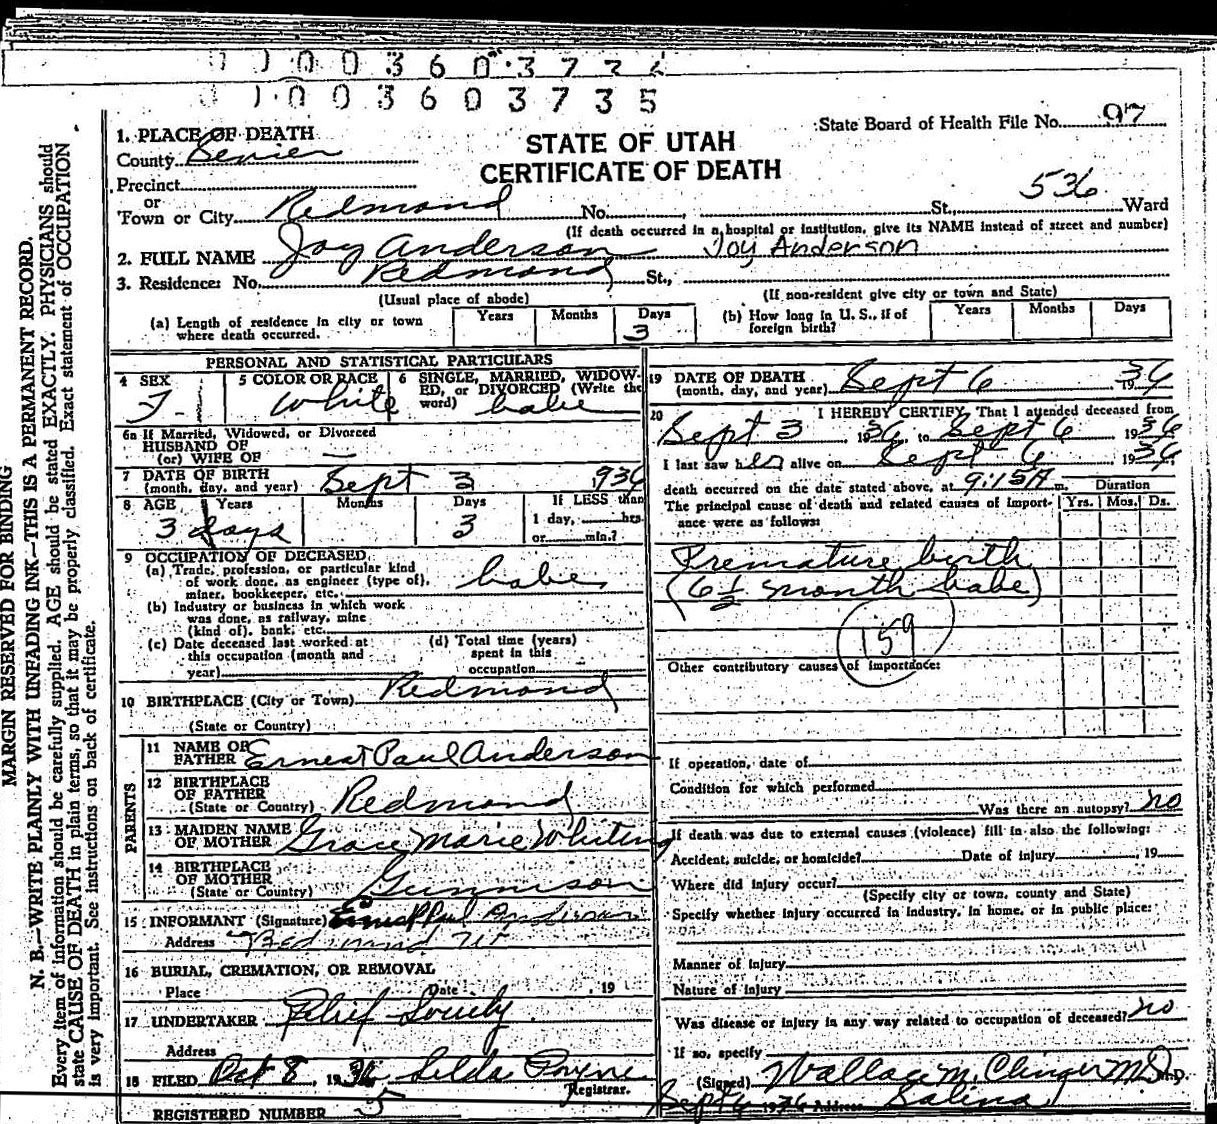 1003603735
State Board of Health File No. 97
STATE OF UTAH
CERTIFICATE OF DEATH
1. PLACE OF DEATH
County Sevier
Precinct
or
Town or City Redmond No. St., 536 Ward
(If death occurred in a hospital or institution, give its NAME instead of street and number)
2. FULL NAME Joy Anderson Joy Anderson
3. Residence: No. Redmond St.,
(Usual place of abode) (If non-resident give city or town and State)
(a) Length of residence in city or town where death occurred. Years Months Days 3
(b) How long in U. S., if of foreign birth? Years Months Days
PERSONAL AND STATISTICAL PARTICULARS
4 SEX F
5 COLOR OR RACE White
6 SINGLE, MARRIED, WIDOWED, or DIVORCED (Write the word) babe
6a If Married, Widowed, or Divorced
HUSBAND OF
(or) WIFE OF —
7 DATE OF BIRTH
(month, day, and year) Sept 3 1936
8 AGE Years Months Days If LESS than
3 days 3 1 day, hrs.
or min.?
9 OCCUPATION OF DECEASED
(a) Trade, profession, or particular kind
of work done, as engineer (type of),
miner, bookkeeper, etc. babe
(b) Industry or business in which work
was done, as railway, mine
(kind of), bank, etc.
(c) Date deceased last worked at
this occupation (month and
year)
(d) Total time (years)
spent in this
occupation
10 BIRTHPLACE (City or Town) Redmond
(State or Country)
PARENTS
11 NAME OF
FATHER Ernest Paul Anderson
12 BIRTHPLACE
OF FATHER
(State or Country) Redmond
13 MAIDEN NAME
OF MOTHER Grace Marie Whiting
14 BIRTHPLACE
OF MOTHER
(State or Country) Gunnison
15 INFORMANT (Signature) Paul Anderson
Address Redmond Ut
16 BURIAL, CREMATION, OR REMOVAL
Place Date 19
17 UNDERTAKER Relief Society
Address
18 FILED Oct 8, 1936 Selda Payne
Registrar.
REGISTERED NUMBER 5
19 DATE OF DEATH
(month, day, and year) Sept 6 1936
20 I HEREBY CERTIFY, That I attended deceased from
Sept 3 1936, to Sept 6 1936
I last saw her alive on Sept 6 1936
death occurred on the date stated above, at 9:15A m. Duration
The principal cause of death and related causes of importance were as follows: Yrs. Mos. Ds.
Premature birth
(6½ month babe)
159
Other contributory causes of importance:
If operation, date of
Condition for which performed
Was there an autopsy? no
If death was due to external causes (violence) fill in also the following:
Accident, suicide, or homicide? Date of injury , 19
Where did injury occur?
(Specify city or town, county and State)
Specify whether injury occurred in industry, in home, or in public place:
Manner of Injury
Nature of Injury
Was disease or injury in any way related to occupation of deceased? no
If so, specify
(Signed) Wallace M. Clinger M.D. M.D.
Sept 6 1936 Address Salina
MARGIN RESERVED FOR BINDING
N. B.—WRITE PLAINLY WITH UNFADING INK—THIS IS A PERMANENT RECORD.
Every item of information should be carefully supplied. AGE should be stated EXACTLY. PHYSICIANS should
state CAUSE OF DEATH in plain terms, so that it may be properly classified. Exact statement of OCCUPATION
is very important. See instructions on back of certificate.